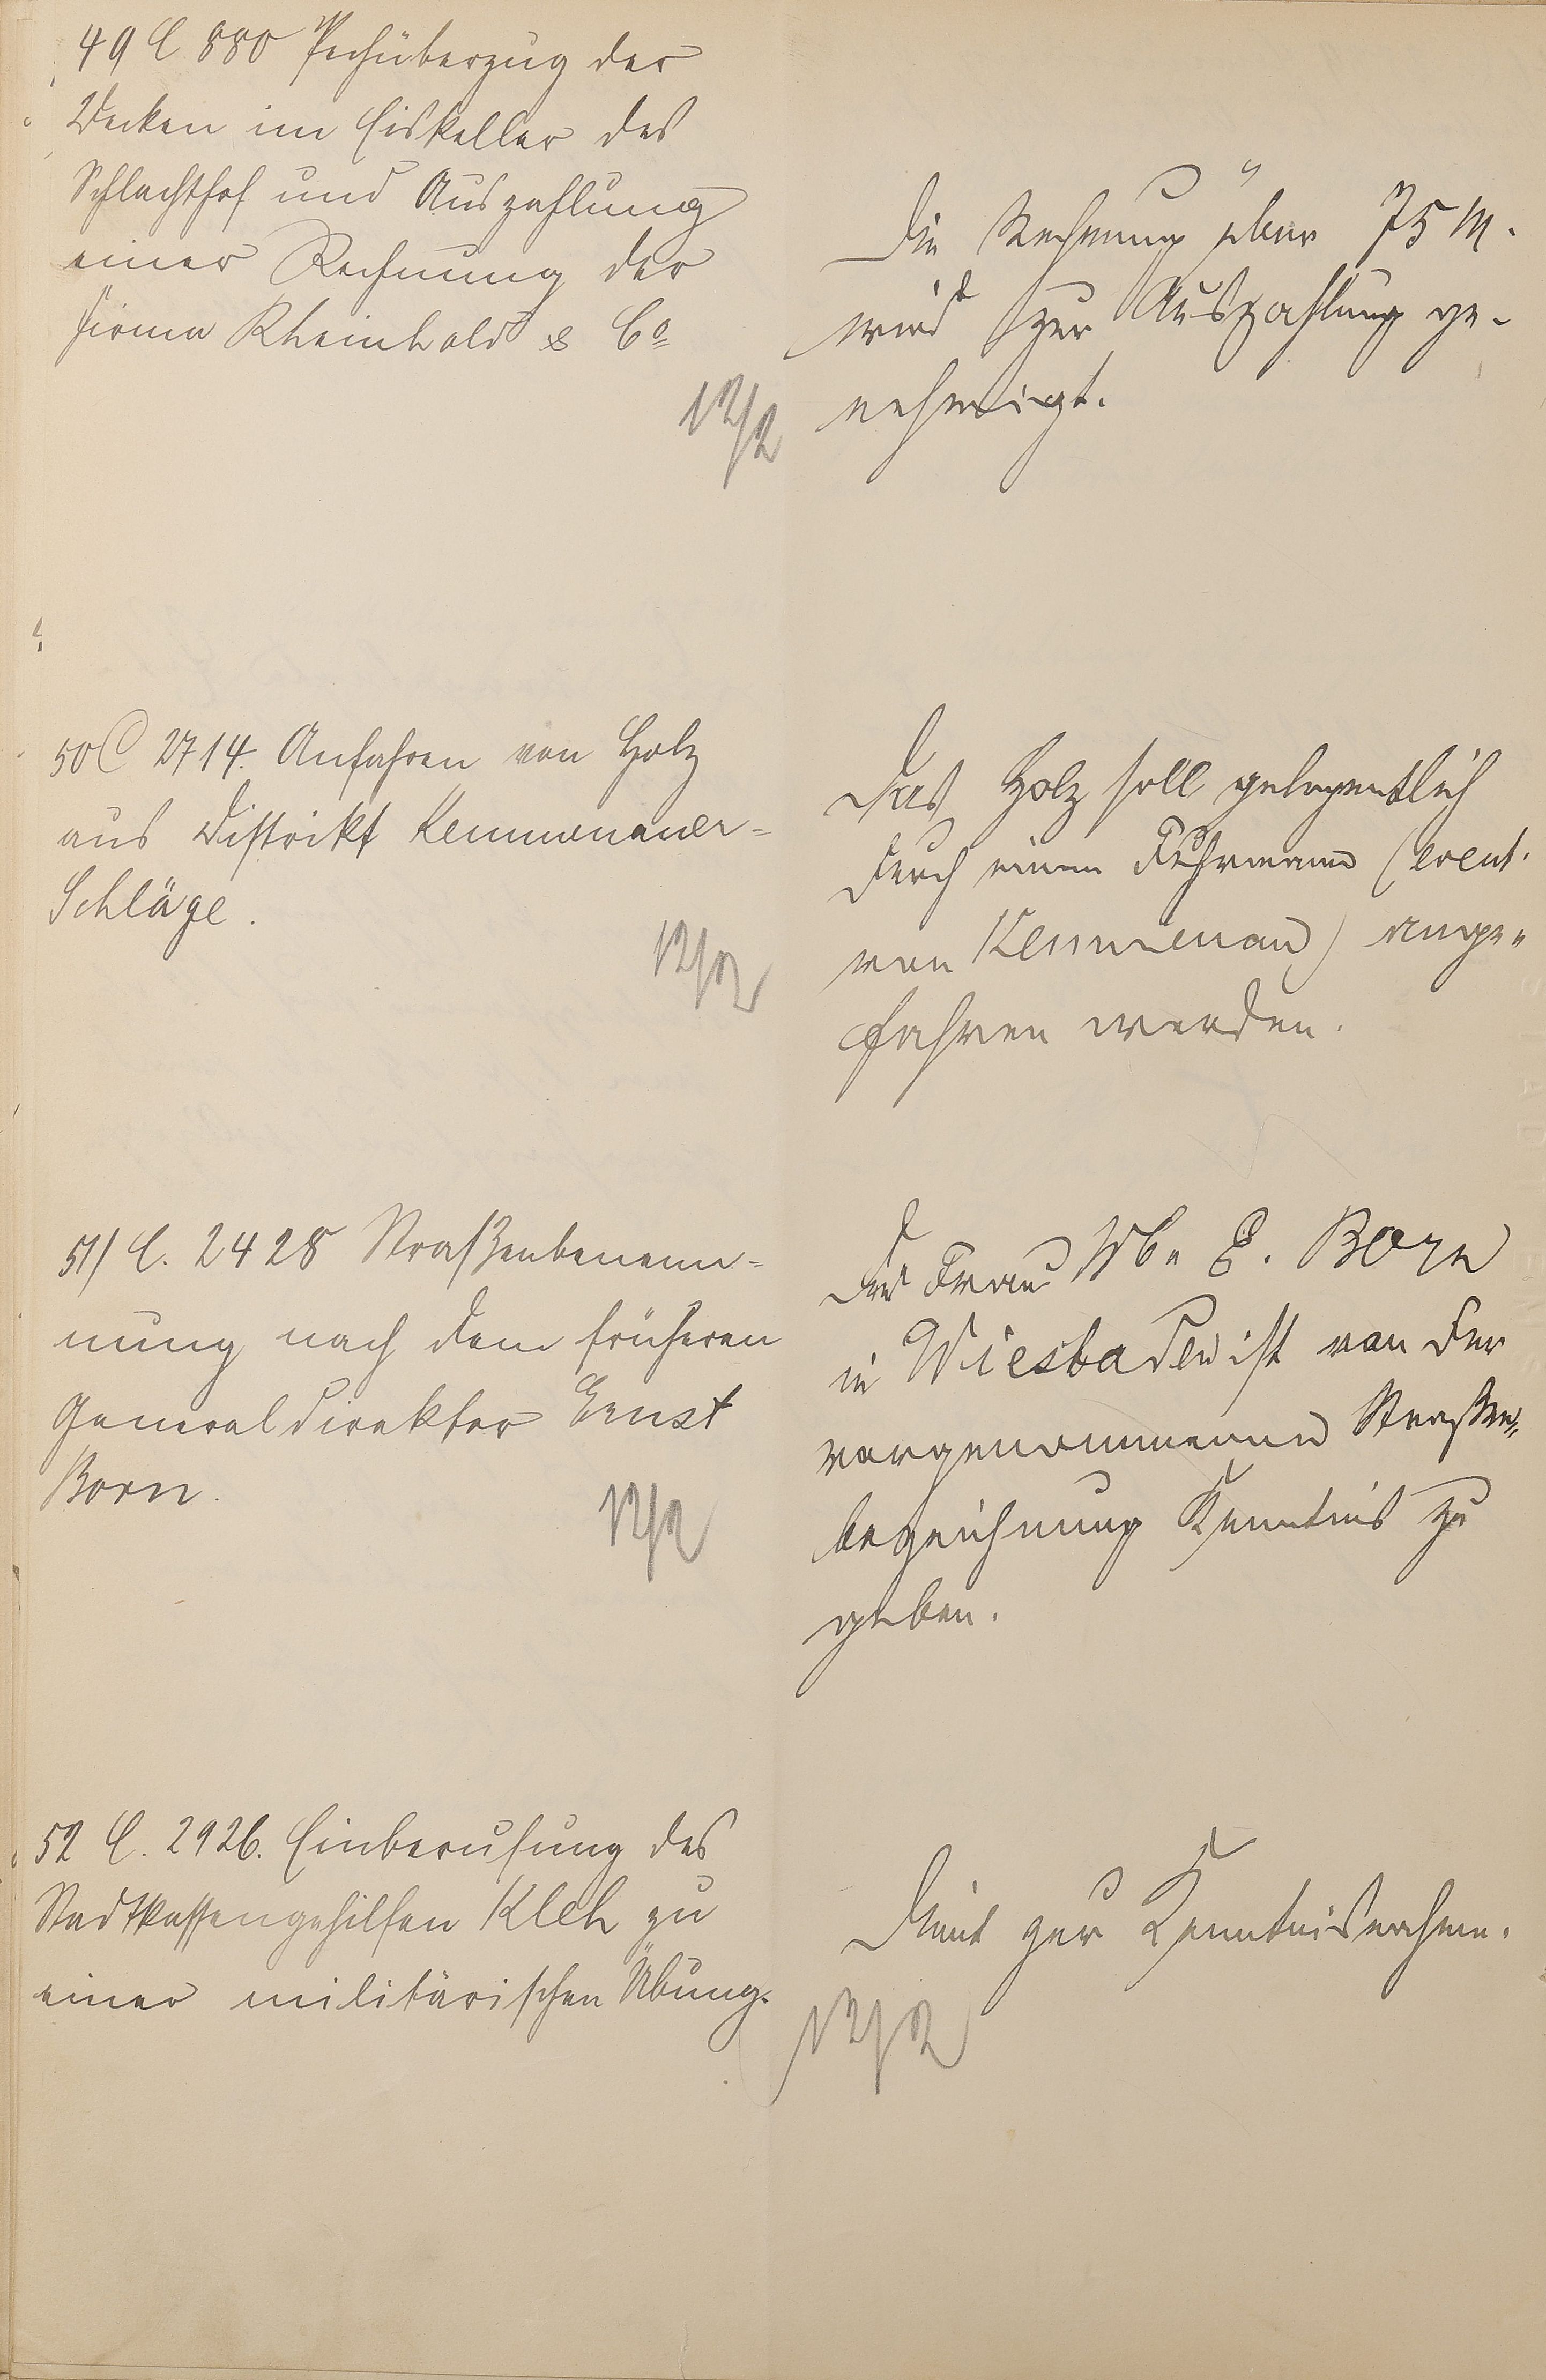 49 C 880 Pechüberzug der
Decken im Eiskeller des
Schlachthof und Auszahlung
einer Rechnung der
Firma Rheinhold & Co
12/2
Die Rechnung über 75 M.
wird zur Auszahlung ge-
nehmigt.
50 C 2714. Anfahren von Holz
aus Distrikt Kemmenauer-
Schläge.
12/2
Das Holz soll gelegentlich
durch einen Fuhrmann (event.
von Kemmenau) ange-
fahren werden.
51/ C. 2428 Straßenbenenn-
nung nach dem früheren
Generaldirektor Ernst
Born.
12/2
Der Frau Ww. E. Born
in Wiesbaden ist von der
vorgenommenen Straßen-
bezeichnung Kenntnis zu
geben.
52 C. 2926. Einberufung des
Stadtkassengehilfen Kleh zu
einer militärischen Übung.
Dient zur Kenntnisnahme.
12/2